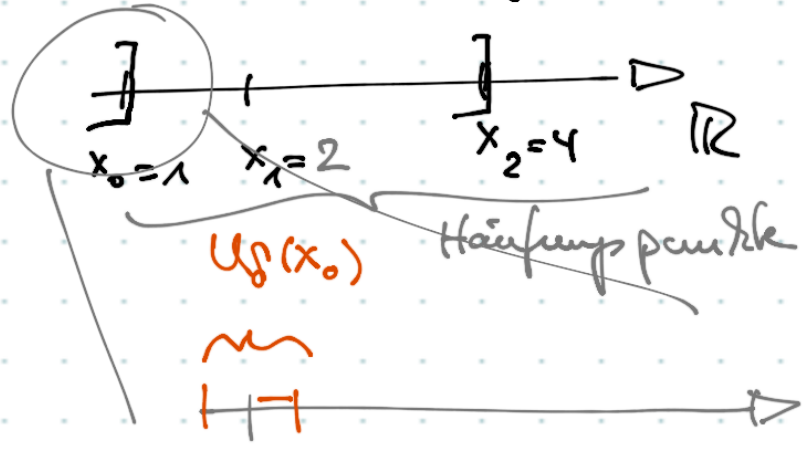 ] ] ℝ
x₀=1 x₁=2 x₂=4
Häufungspunkte
U_δ(x₀)